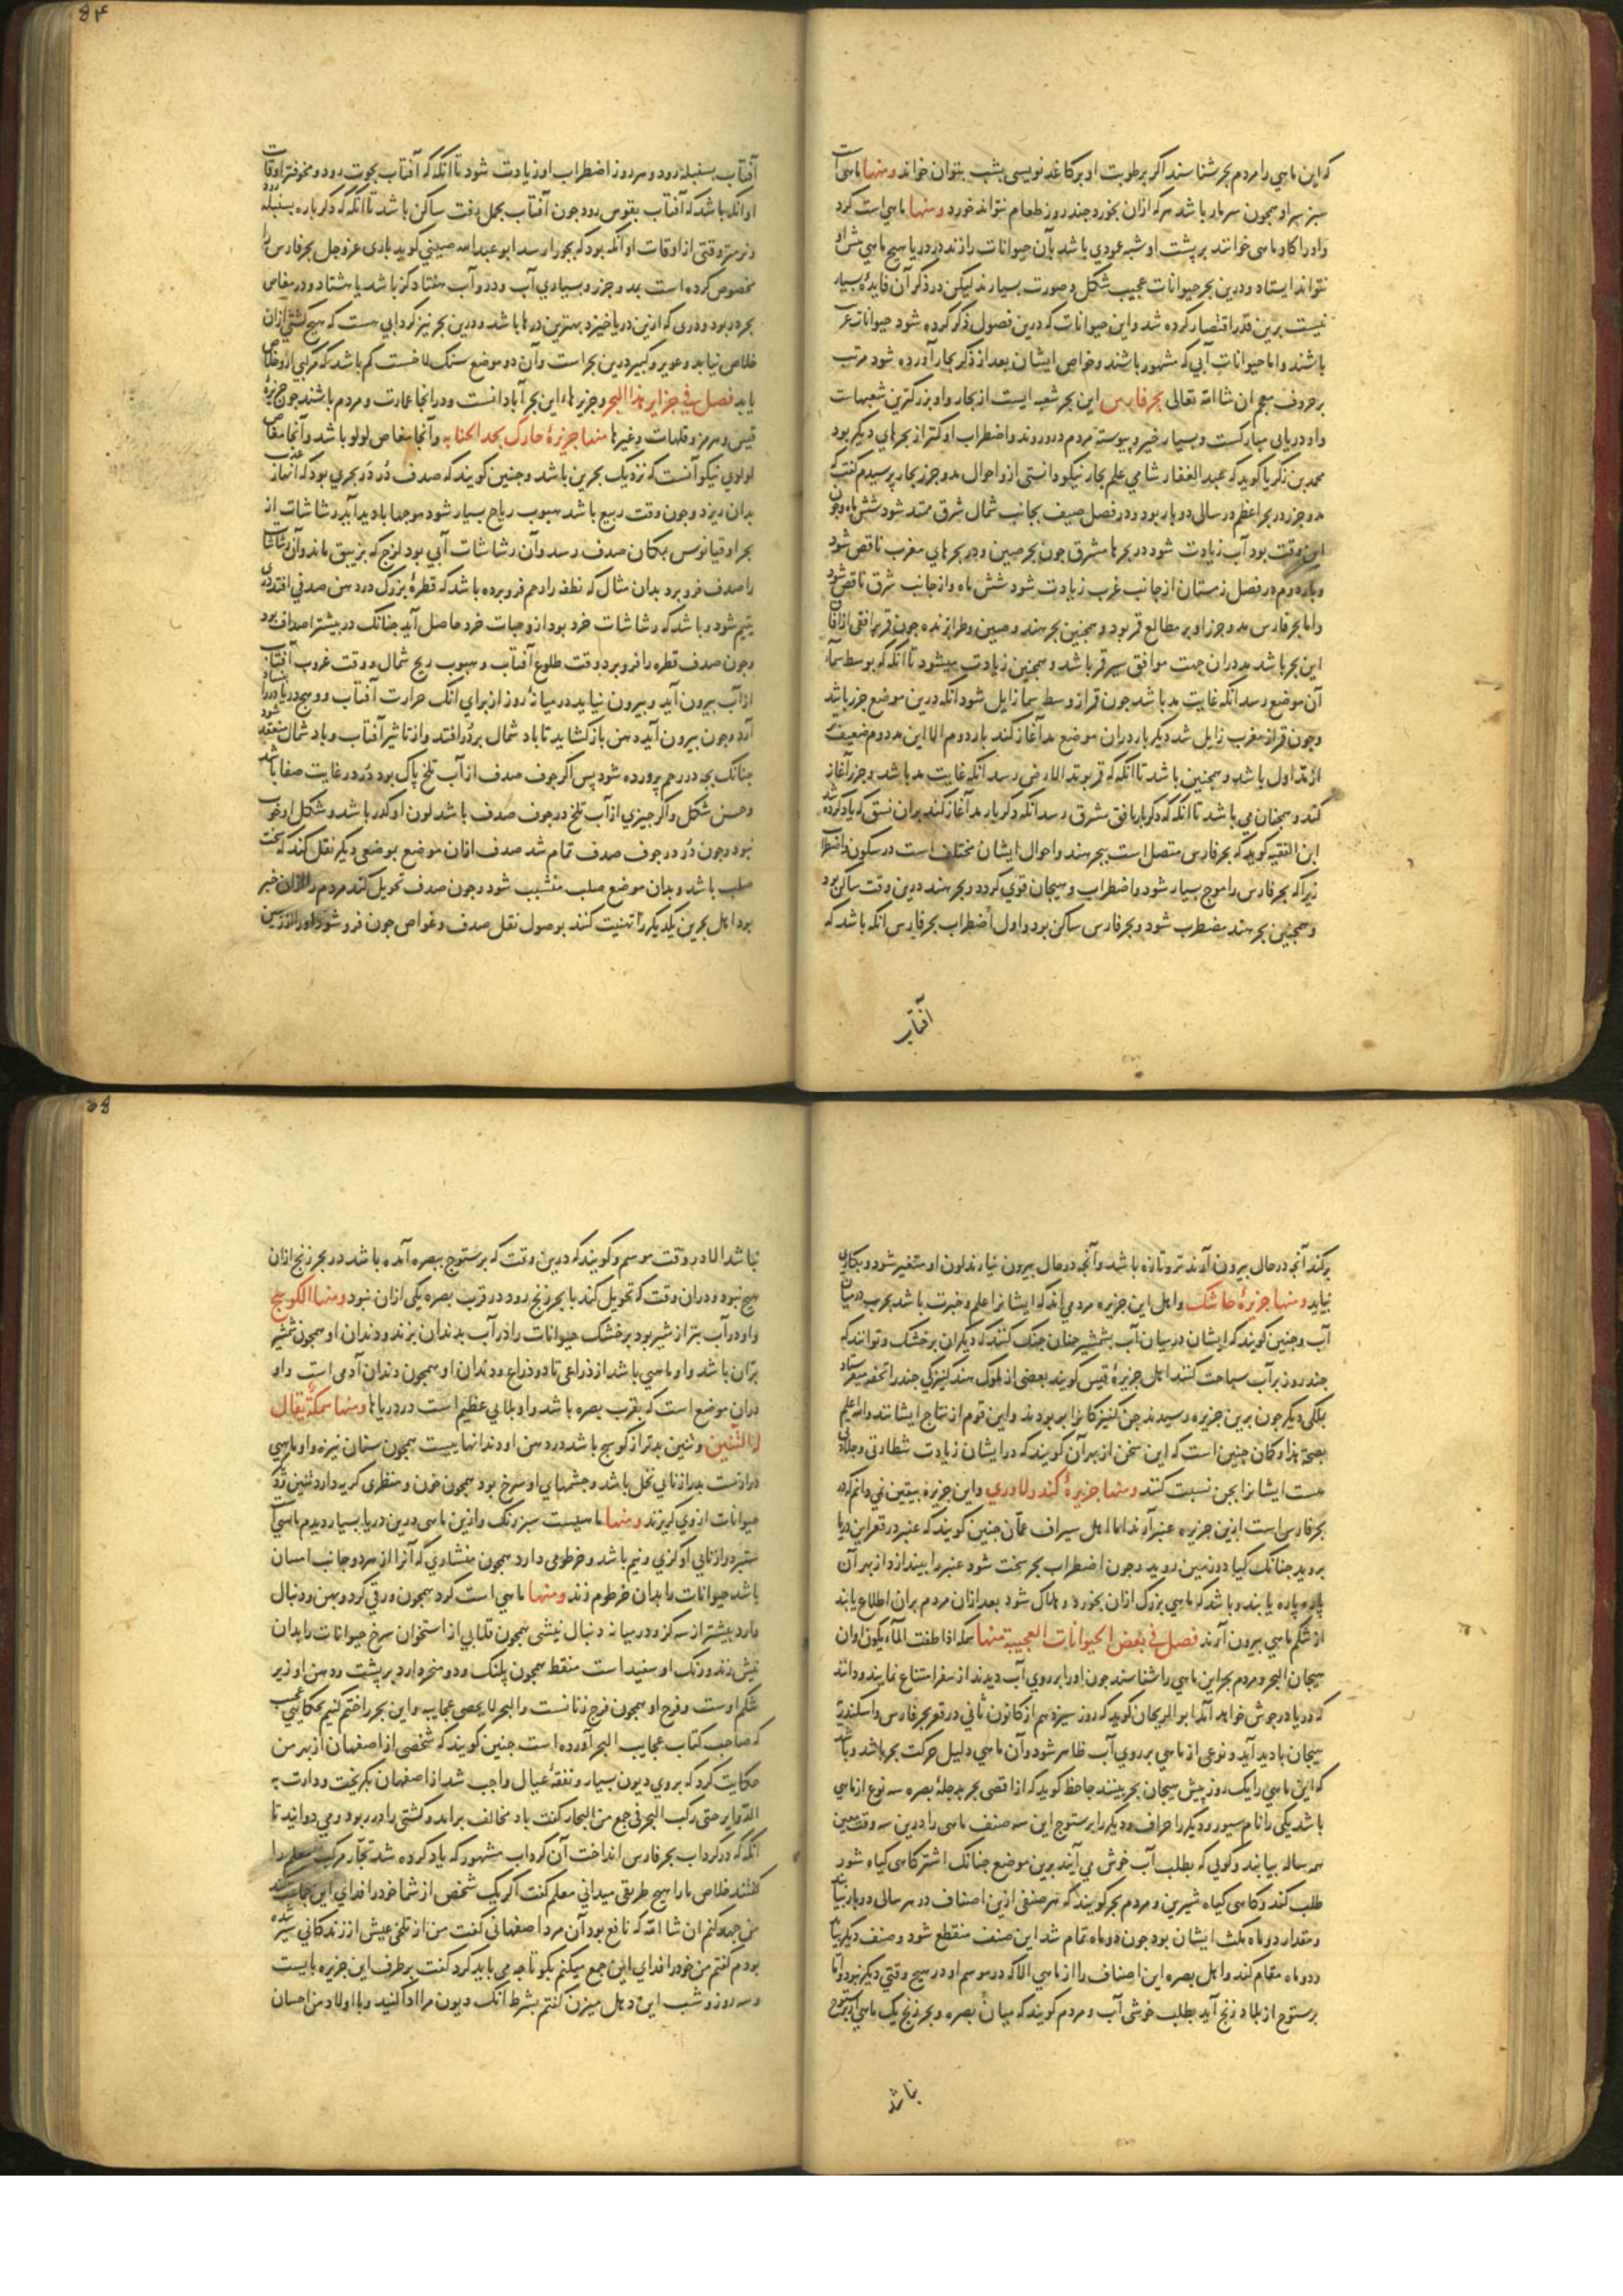 که این ماهی را مردم بحر شناسند اکر برطوبت او بر کاغذ نویسی بشب بتوان خواند ومنها ماهی است
سبز سر او همچون سر مار باشد هرکه ازان بخورد چند روز طعام نتواند خورد ومنها ماهی است کرد
واو را کاو ماهی خوانند بر پشت او شبه عودی باشد بآن حیوانات را زند در دریا هیچ ماهی پیش او
نتواند ایستاد ودرین بحر حیوانات عجیب شکل وصورت بسیارند لیکن در ذکر آن فایدهٔ بسیار
نیست برین قدر اقتصار کرده شد واین حیوانات که درین فصول ذکر کرده شود حیوانات
باشند واما حیوانات آبی که مشهور باشند وخواص ایشان بعد از ذکر بحار آورده شود مرتب
بر حروف معجم ان شا الله تعالی بحر فارس این بحر شعبه ایست از بحار واو بزرکترین شعبهاست
واو دریایی مبارکست وبسیار خیر وپیوسته مردم درو روند واضطراب او کمتر از بحرهای دیکر بود
محمد بن زکریا کوید که عبد الغفار شامی علم بحار نیکو دانستی ازو احوال مد وجزر بحار پرسیدم کفت که
مد وجزر در بحر اعظم در سالی دو بار بود ودر فصل صیف بجانب شمال شرق ممتد شود شش ماه وچون
این وقت بود آب زیادت شود در بحرها مشرق چون بحر صین ودر بحرهای مغرب ناقص شود
وباره دوم در فصل زمستان از جانب غرب زیادت شود شش ماه واز جانب شرق ناقص شود
واما بحر فارس مد وجزر او بر مطالع قمر بود وهمچنین بحر هند وصین وطرابزنده چون قمر بر افقی از آفاق
این بحر باشد مد دران جهت موافق سیر قمر باشد وهمچنین زیادت میشود تا آنکه که بوسط سما
آن موضع رسد آنکه غایت مد باشد چون قمر از وسط سما زایل شود آنکه درین موضع جزر باشد
وچون قمر از مغرب زایل شد دیکر بار دران موضع مد آغاز کند بار دوم الا این مد دوم ضعیف
از مد اول باشد وهمچنین باشد تا آنکه که قمر بوتد الارض رسد آنکه غایت مد باشد وجزر آغاز
کند وهمچنان می باشد تا آنکه که دکر بار بافق مشرق رسد آنکه دکر بار مد آغاز کند بران نسق که یاد کرده شد
ابن الفقیه کوید که بحر فارس متصل است ببحر هند واحوال ایشان مختلف است در سکون واضطراب
زیرا که بحر فارس را موج بسیار شود واضطراب وهیجان قوی کردد وبحر هند درین وقت ساکن بود
وهمچنین بحر هند مضطرب شود وبحر فارس ساکن بود واول اضطراب بحر فارس آنکه باشد که
آفتاب
آفتاب بسنبله رود وهر روز اضطراب او زیادت شود تا آنکه که آفتاب بحوت رود ومخوفتر اوقات
او آنکه باشد که آفتاب بقوس رود چون آفتاب بحمل رفت ساکن باشد تا آنکه که دکر باره بسنبله رود
ونرمتر وقتی از اوقات او آنکه بود که بجوزا رسد ابو عبد الله حسینی کوید باری عز وجل بحر فارس را
مخصوص کرده است بمد وجزر وبسیاری آب ودرو آب هفتاد کز باشد یا هشتاد ودر مغاص
بحر در بود ودری که ازین دریا خیزد بهترین درها باشد ودرین بحر نیز کردابی هست که هیچ کشتی ازان
خلاص نیابد وعویر وکسیر درین بحر است وآن دو موضع سنک لاخست کم باشد که مرکبی ازو خلاص
یابد فصل فی جزایر هذا البحر وجزیرها، این بحر آبادانست ودر انجا عمارت ومردم باشند چون جزیرهٔ
قیس وهرمز وقلهات وغیرها منها جزیرهٔ خارک بحد الجنابه وآنجا مغاص لولو باشد وآنجا مغاص
لولوی نیکو آنست که نزدیک بحرین باشد وچنین کویند که صدف در در بحری بود که انهار عذب
بدان ریزد وچون وقت ربیع باشد هبوب ریاح بسیار شود موجها بادید آید رشاشات از
بحر اوقیانوس بمکان صدف رسد وآن رشاشات آبی بود لزج که بزیبق ماند وآن رشاشات
را صدف فرو برد بدان مثال که نطفه را رحم فرو برده باشد که قطرهٔ بزرک در دهن صدفی افتد در
یتیم شود وباشد که رشاشات خرد بود ازو حبات خرد حاصل آید چنانک در بیشتر اصداف بود
وچون صدف قطره را فرو برد وقت طلوع آفتاب وهبوب ریح شمال ووقت غروب آفتاب
از آب بیرون آید وبیرون نیاید در میانهٔ روز از برای آنک حرارت آفتاب ووهج دریا
آرد وچون بیرون آید دهن باز کشاید تا باد شمال بر در افتد واز تاثیر آفتاب وباد شمال منعقد شود
چنانک بچه در رحم پرورده شود پس اکر جوف صدف از آب تلخ پاک بود در در غایت صفا باشد
وحسن شکل واکر چیزی از آب تلخ در جوف صدف باشد لون او کدر باشد وشکل او خوب
نبود وچون در در جوف صدف تمام شد صدف ازان موضع بموضعی دیکر نقل کند که سخت
صلب باشد وبدان موضع صلب متشبب شود وچون صدف تحویل کند مردم را ازان خبر
بود اهل بحرین یکدیکر را تهنیت کنند بوصول نقل صدف وغواص چون فرو شود
برکند آنچه در حال بیرون آورند تر وتازه باشد وآنچه در حال بیرون نیارند لون او متغیر شود وبکار
نیاید ومنها جزیرهٔ جاشک واهل این جزیره مردمی اند که ایشانرا علم وخبرت باشد بحرب در میان
آب وچنین کویند که ایشان در میان آب بشمشیر چنان جنک کنند که دیکران بر خشک وتوانند که
چند روز بر آب سباحت کنند اهل جزیرهٔ قیس کویند بعضی از ملوک هند کنیزکی چند را تحفه میفرستاد
بملکی دیکر چون برین جزیره رسیدند جن کنیزکانرا بربودند واین قوم از نتاج ایشانند والله اعلم
بصحة هذا وکان چنین است که این سخن از بهر آن کویند که در ایشان زیادت شطارتی وجلادتی
هست ایشانرا بجن نسبت کنند ومنها جزیرهٔ کندولاوری واین جزیره بیقین نمی دانم که در
بحر فارس است ازین جزیره عنبر آرند اما اهل سیراف عمان چنین کویند که عنبر در قعر این دریا
بروید چنانک کیاه در زمین روید وچون اضطراب بحر سخت شود عنبر را بیندازد از بهر آن
پاره پاره یابند وباشد که ماهی بزرک ازان بخورد وهلاک شود بعد ازان مردم بران اطلاع یابند
از شکم ماهی بیرون آرند فصل فی بعض الحیوانات العجیبة منها سمکه اذا طفت الماء یکون اوان
هیجان البحر ومردم بحر این ماهی را شناسند چون او را بر روی آب دیدند از سفر امتناع نمایند ودانند
که دریا در جوش خواهد آمد ابو الریحان کوید که روز سیزدهم از کانون ثانی در قعر بحر فارس واسکندریه
هیجان بادید آید ونوعی از ماهی بر روی آب ظاهر شود وآن ماهی دلیل حرکت بحر باشد وباشد
که این ماهی را یک روز پیش هیجان بحر بینند جاحظ کوید که از اقصی بحر بدجلهٔ بصره سه نوع از ماهی
باشد یکی را نام سبور ودیکر را جراف ودیکر را برستوج این سه صنف ماهی را درین سه وقت معین
همه ساله بیابند وکویی که بطلب آب خوش می آیند برین موضع چنانک اشتر کاهی کیاه شور
طلب کند وکاهی کیاه شیرین ومردم بحر کویند که هر صنفی ازین اصناف در هر سالی دو بار بیاید
ومقدار دو ماه مکث ایشان بود چون دو ماه تمام شد این صنف منقطع شود وصنف دیکر بیاید
ودو ماه مقام کند واهل بصره این اصناف را از ماهی الا که در موسم او در هیچ وقتی دیکر نبود واما
برستوج از بلاد زنج آید بطلب خوشی آب ومردم کویند که میان بصره وبحر زنج یک ماهی از برستوج
نباشد
نباشد الا در وقت موسم وکویند که درین وقت که برستوج ببصره آمده باشد در بحر زنج ازان
هیچ نبود ودران وقت که تحویل کند با بحر زنج رود در قرب بصره یکی ازان نبود ومنها الکوسج
واو در آب بتر از شیر بود بر خشک حیوانات را در آب بدندان بزند ودندان او همچون شمشیر
بران باشد واو ماهیی باشد از ذراعی تا دو ذراع ودندان او همچون دندان آدمی است واو
دران موضع است که بقرب بصره باشد واو بلایی عظیم است در دریاها ومنها سمکة یقال
لها التنین وتنین بدتر از کوسج باشد در دهن او دندانهاییست همچون سنان نیزه واو ماهیی
درازست بدرازنایی نخل باشد وچشمهای او سرخ بود همچون خون ومنظری کریه دارد تنین
حیوانات ازوی کریزند ومنها ماهییست سبز رنک وازین ماهی درین دریا بسیار دیدم ماهیی
ستبر درازنایی او کزی ونیم باشد وخرطومی دارد همچون منشاری که آنرا از هر دو جانب اسنان
باشد حیوانات را بدان خرطوم زند ومنها ماهیی است کرد همچون ورقی کرد وپهن ودنبال
دارد بیشتر از سه کز ودر میانه دنبال نیشی همچون قلابی از استخوان سرخ حیوانات را بدان
نیش زند ورنک او سفید است منقط همچون پلنک ودو منخر دارد بر پشت ودهن او زیر
شکم اوست وفرج او همچون فرج زنانست والبحر لا یحصی عجایبه واین بحر را ختم کنیم بحکایتی عجیب
که صاحب کتاب عجایب البحر آورده است چنین کویند که شخصی از اصفهان از بهر من
حکایت کرد که بروی دیون بسیار ونفقهٔ عیال واجب شد از اصفهان بکریخت ودارت به
الدوایر حتی رکب البحر فی جمع من التجار کفت باد مخالف برآمد وکشتی را در ربود ومی دوانید تا
آنکه که در کرداب بحر فارس انداخت آن کرداب مشهور که یاد کرده شد تجار مرکب معلم را
کفتند خلاص ما را هیچ طریقی میدانی معلم کفت اکر یک شخص از شما خود را فدای این جماعت کند
من جهد کنم ان شا الله که نافع بود آن مرد اصفهانی کفت من از تلخی عیش از زندکانی سیر شده
بودم کفتم من خود را فدای این جمع میکنم بکو تا چه می باید کرد کفت بر طرف این جزیره بایست
وسه روز وشب این دهل میزن کفتم بشرط آنک دیون مرا ادا کنید وبا اولاد من احسان